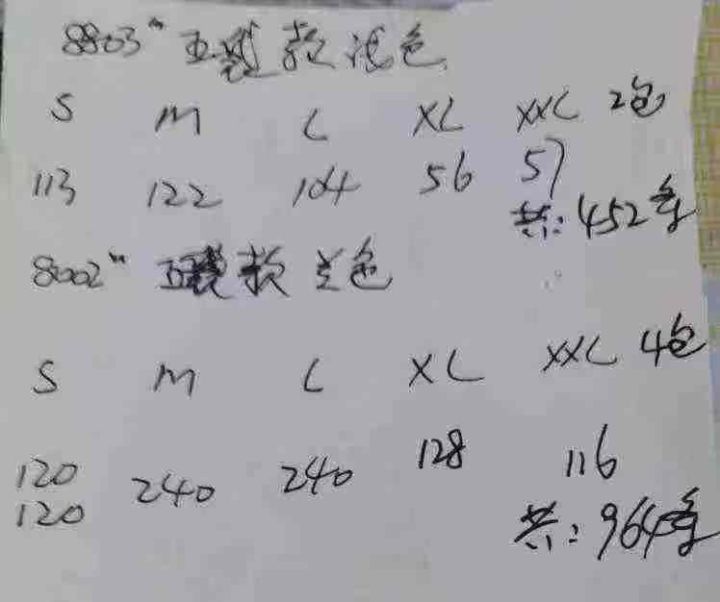 8803# 款 浅色
S M L XL XXL 2包
113 122 104 56 57
共:452条
8002# 款 兰色
S M L XL XXL 4包
120 240 240 128 116
120
共:964条